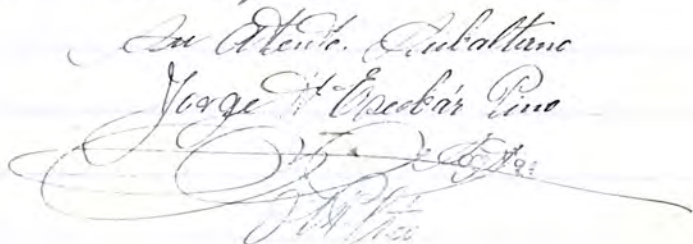 Su Atento. Subalterno
Jorge H. Escobár Pino